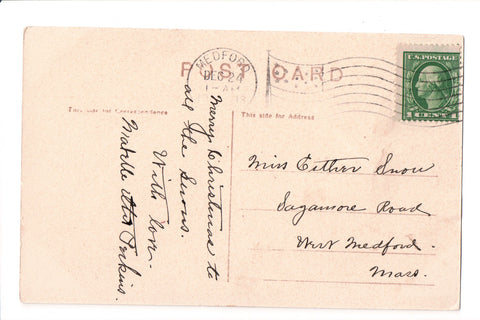 POST CARD
MEDFORD
DEC 24
1-AM
U.S. POSTAGE
1 CENT 1
This side for Correspondence
This side for Address
Merry Christmas to
all the Snows.
With love.
Perkins.
Miss Esther Snow
Sagamore Road
West Medford.
Mass.